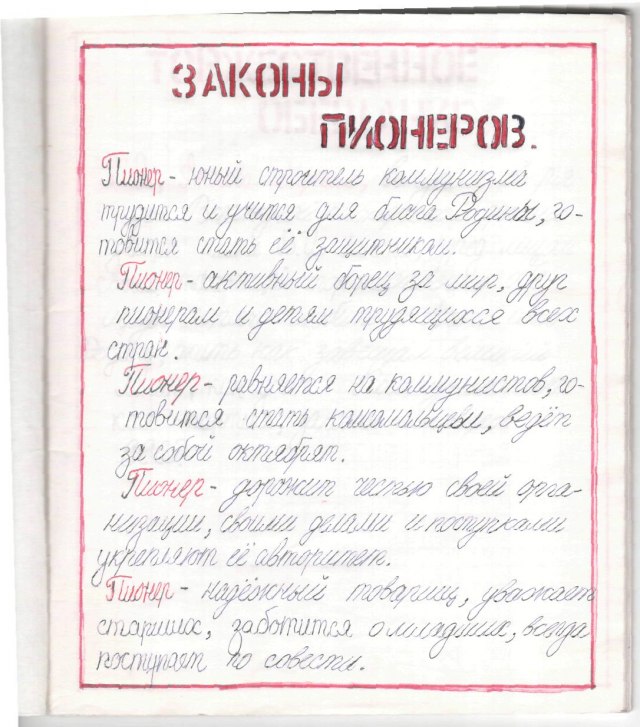 ЗАКОНЫ
ПИОНЕРОВ.
Пионер - юный строитель коммунизма
трудится и учится для блага Родины, го-
товится стать её защитником.
Пионер - активный борец за мир, друг
пионерам и детям трудящихся всех
стран.
Пионер - равняется на коммунистов, го-
товится стать комсомольцем, ведёт
за собой октябрят.
Пионер - дорожит честью своей орга-
низации, своими делами и поступками
укрепляют её авторитет.
Пионер - надёжный товарищ, уважает
старших, заботится о младших, всегда
поступает по совести.